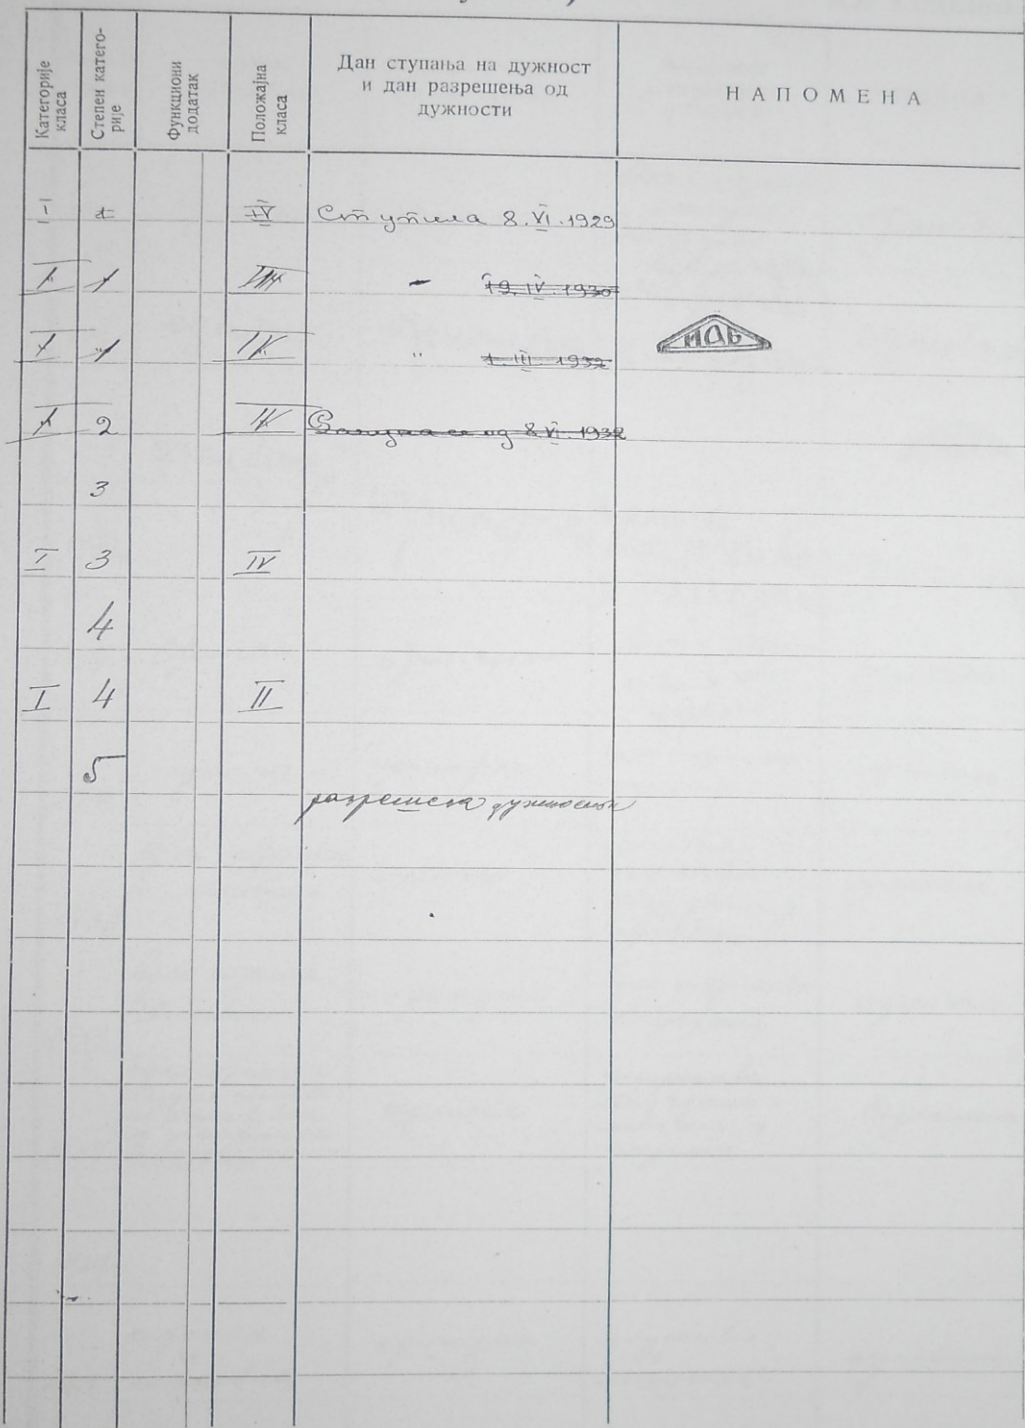 Категорије класа
Степен катего-рије
Функциони додатак
Положајна класа
Дан ступања на дужност
и дан разрешења од
дужности
НАПОМЕНА
I IV Ступила 8. VI. 1929
I 1 III 19. IV. 1930
I 1 IV " 1. III. 1932
МДБ
I 2 IV од 8. VI. 1932
3
I 3 IV
4
I 4 II
5
разрешена дужности